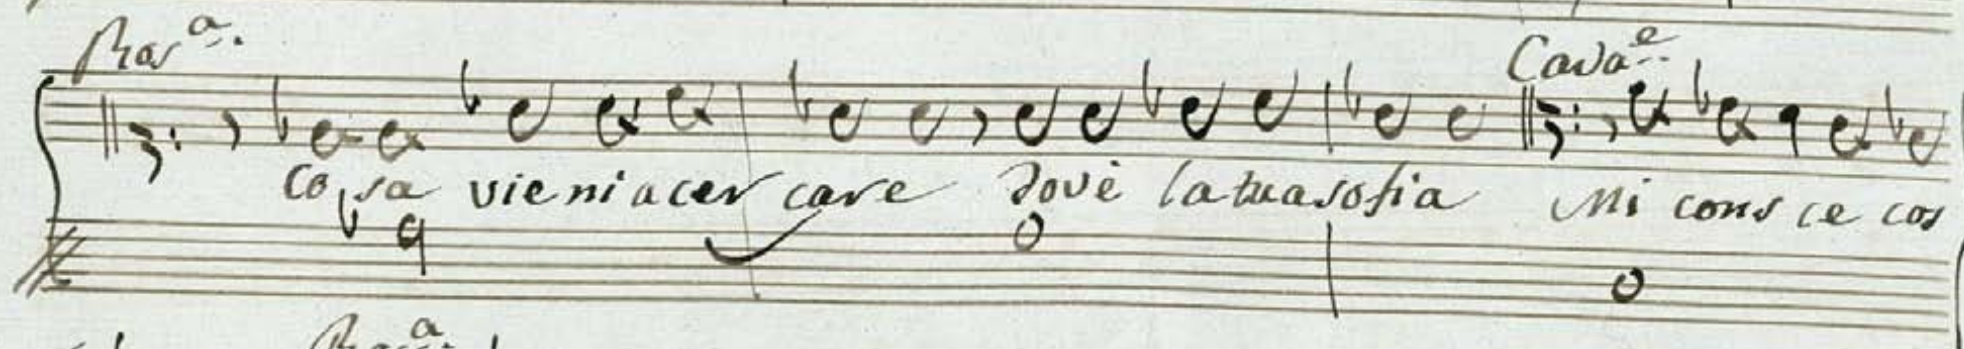 Ros.ª Cava.e
Cosa vieni a cer care dovè la tua sofia Mi cons ce cos